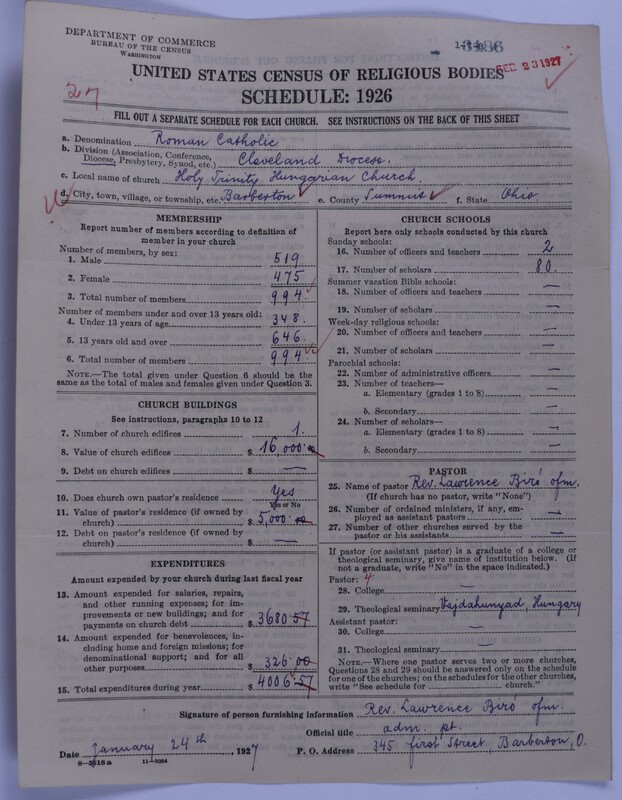 DEPARTMENT OF COMMERCE
BUREAU OF THE CENSUS
WASHINGTON
DEC 23 1927
27
UNITED STATES CENSUS OF RELIGIOUS BODIES
SCHEDULE: 1926
FILL OUT A SEPARATE SCHEDULE FOR EACH CHURCH. SEE INSTRUCTIONS ON THE BACK OF THIS SHEET
a. Denomination Roman Catholic
b. Division (Association, Conference, Diocese, Presbytery, Synod, etc.) Cleveland Diocese.
c. Local name of church Holy Trinity Hungarian Church.
d. City, town, village, or township, etc. Barberton e. County Summit f. State Ohio
MEMBERSHIP
Report number of members according to definition of
member in your church
Number of members, by sex:
1. Male 519
2. Female 475
3. Total number of members 994
Number of members under and over 13 years old:
4. Under 13 years of age 348.
5. 13 years old and over 646.
6. Total number of members 994
NOTE.—The total given under Question 6 should be
same as the total of males and females given under Question 3.
CHURCH BUILDINGS
See instructions, paragraphs 10 to 12
7. Number of church edifices 1.
8. Value of church edifices $ 16,000.
9. Debt on church edifices $ —
10. Does church own pastor's residence Yes
Yes or No
11. Value of pastor's residence (if owned by
church) $ 5,000.00
12. Debt on pastor's residence (if owned by
church) $ —
EXPENDITURES
Amount expended by your church during last fiscal year
13. Amount expended for salaries, repairs,
and other running expenses; for im-
provements or new buildings; and for
payments on church debt $ 3680.57
14. Amount expended for benevolences, in-
cluding home and foreign missions; for
denominational support; and for all
other purposes $ 326.00
15. Total expenditures during year $ 4006.57
CHURCH SCHOOLS
Report here only schools conducted by this church
Sunday schools:
16. Number of officers and teachers 2
17. Number of scholars 80.
Summer vacation Bible schools:
18. Number of officers and teachers —
19. Number of scholars —
Week-day religious schools:
20. Number of officers and teachers —
21. Number of scholars —
Parochial schools:
22. Number of administrative officers —
23. Number of teachers—
a. Elementary (grades 1 to 8) —
b. Secondary —
24. Number of scholars—
a. Elementary (grades 1 to 8) —
b. Secondary —
PASTOR
25. Name of pastor Rev. Lawrence Biró ofm.
(If church has no pastor, write "None")
26. Number of ordained ministers, if any, em-
ployed as assistant pastors —
27. Number of other churches served by the
pastor or his assistants —
If pastor (or assistant pastor) is a graduate of a college or
theological seminary, give name of institution below. (If
not a graduate, write "No" in the space indicated.)
Pastor: 4
28. College —
29. Theological seminary Vajdahunyad, Hungary
Assistant pastor:
30. College —
31. Theological seminary —
NOTE.—Where one pastor serves two or more churches,
Questions 28 and 29 should be answered only on the schedule
for one of the churches; on the schedules for the other churches,
write "See schedule for church."
Signature of person furnishing information Rev. Lawrence Biró ofm.
Official title adm. pt.
Date January 24th, 1927 P. O. Address 345 first Street, Barberton, O.
8—5518a 11—9034